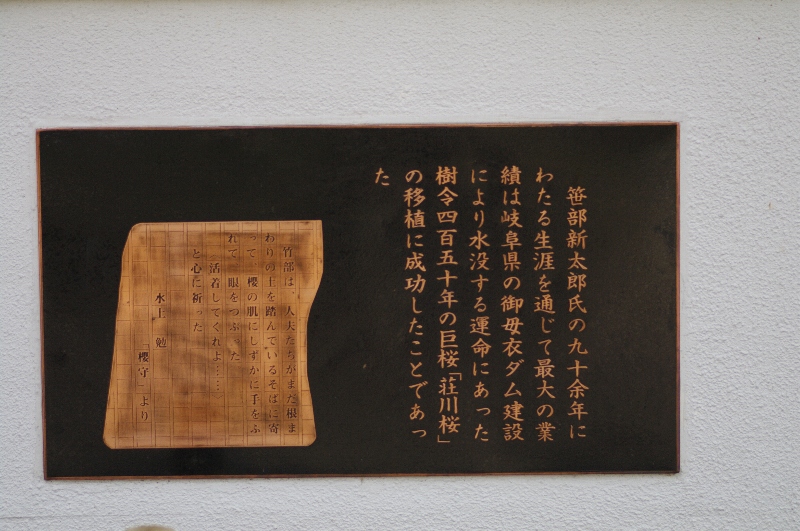 笹部新太郎氏の九十余年に
わたる生涯を通じて最大の業
績は岐阜県の御母衣ダム建設
により水没する運命にあった
樹令四百五十年の巨桜「荘川桜」
の移植に成功したことであっ
た
竹部は、人夫たちがまだ根ま
わりの土を踏んでいるそばに寄
って 櫻の肌にしずかに手をふ
れて 眼をつぶった
「活着してくれよ……」
と心に祈った
水上 勉
「櫻守」より